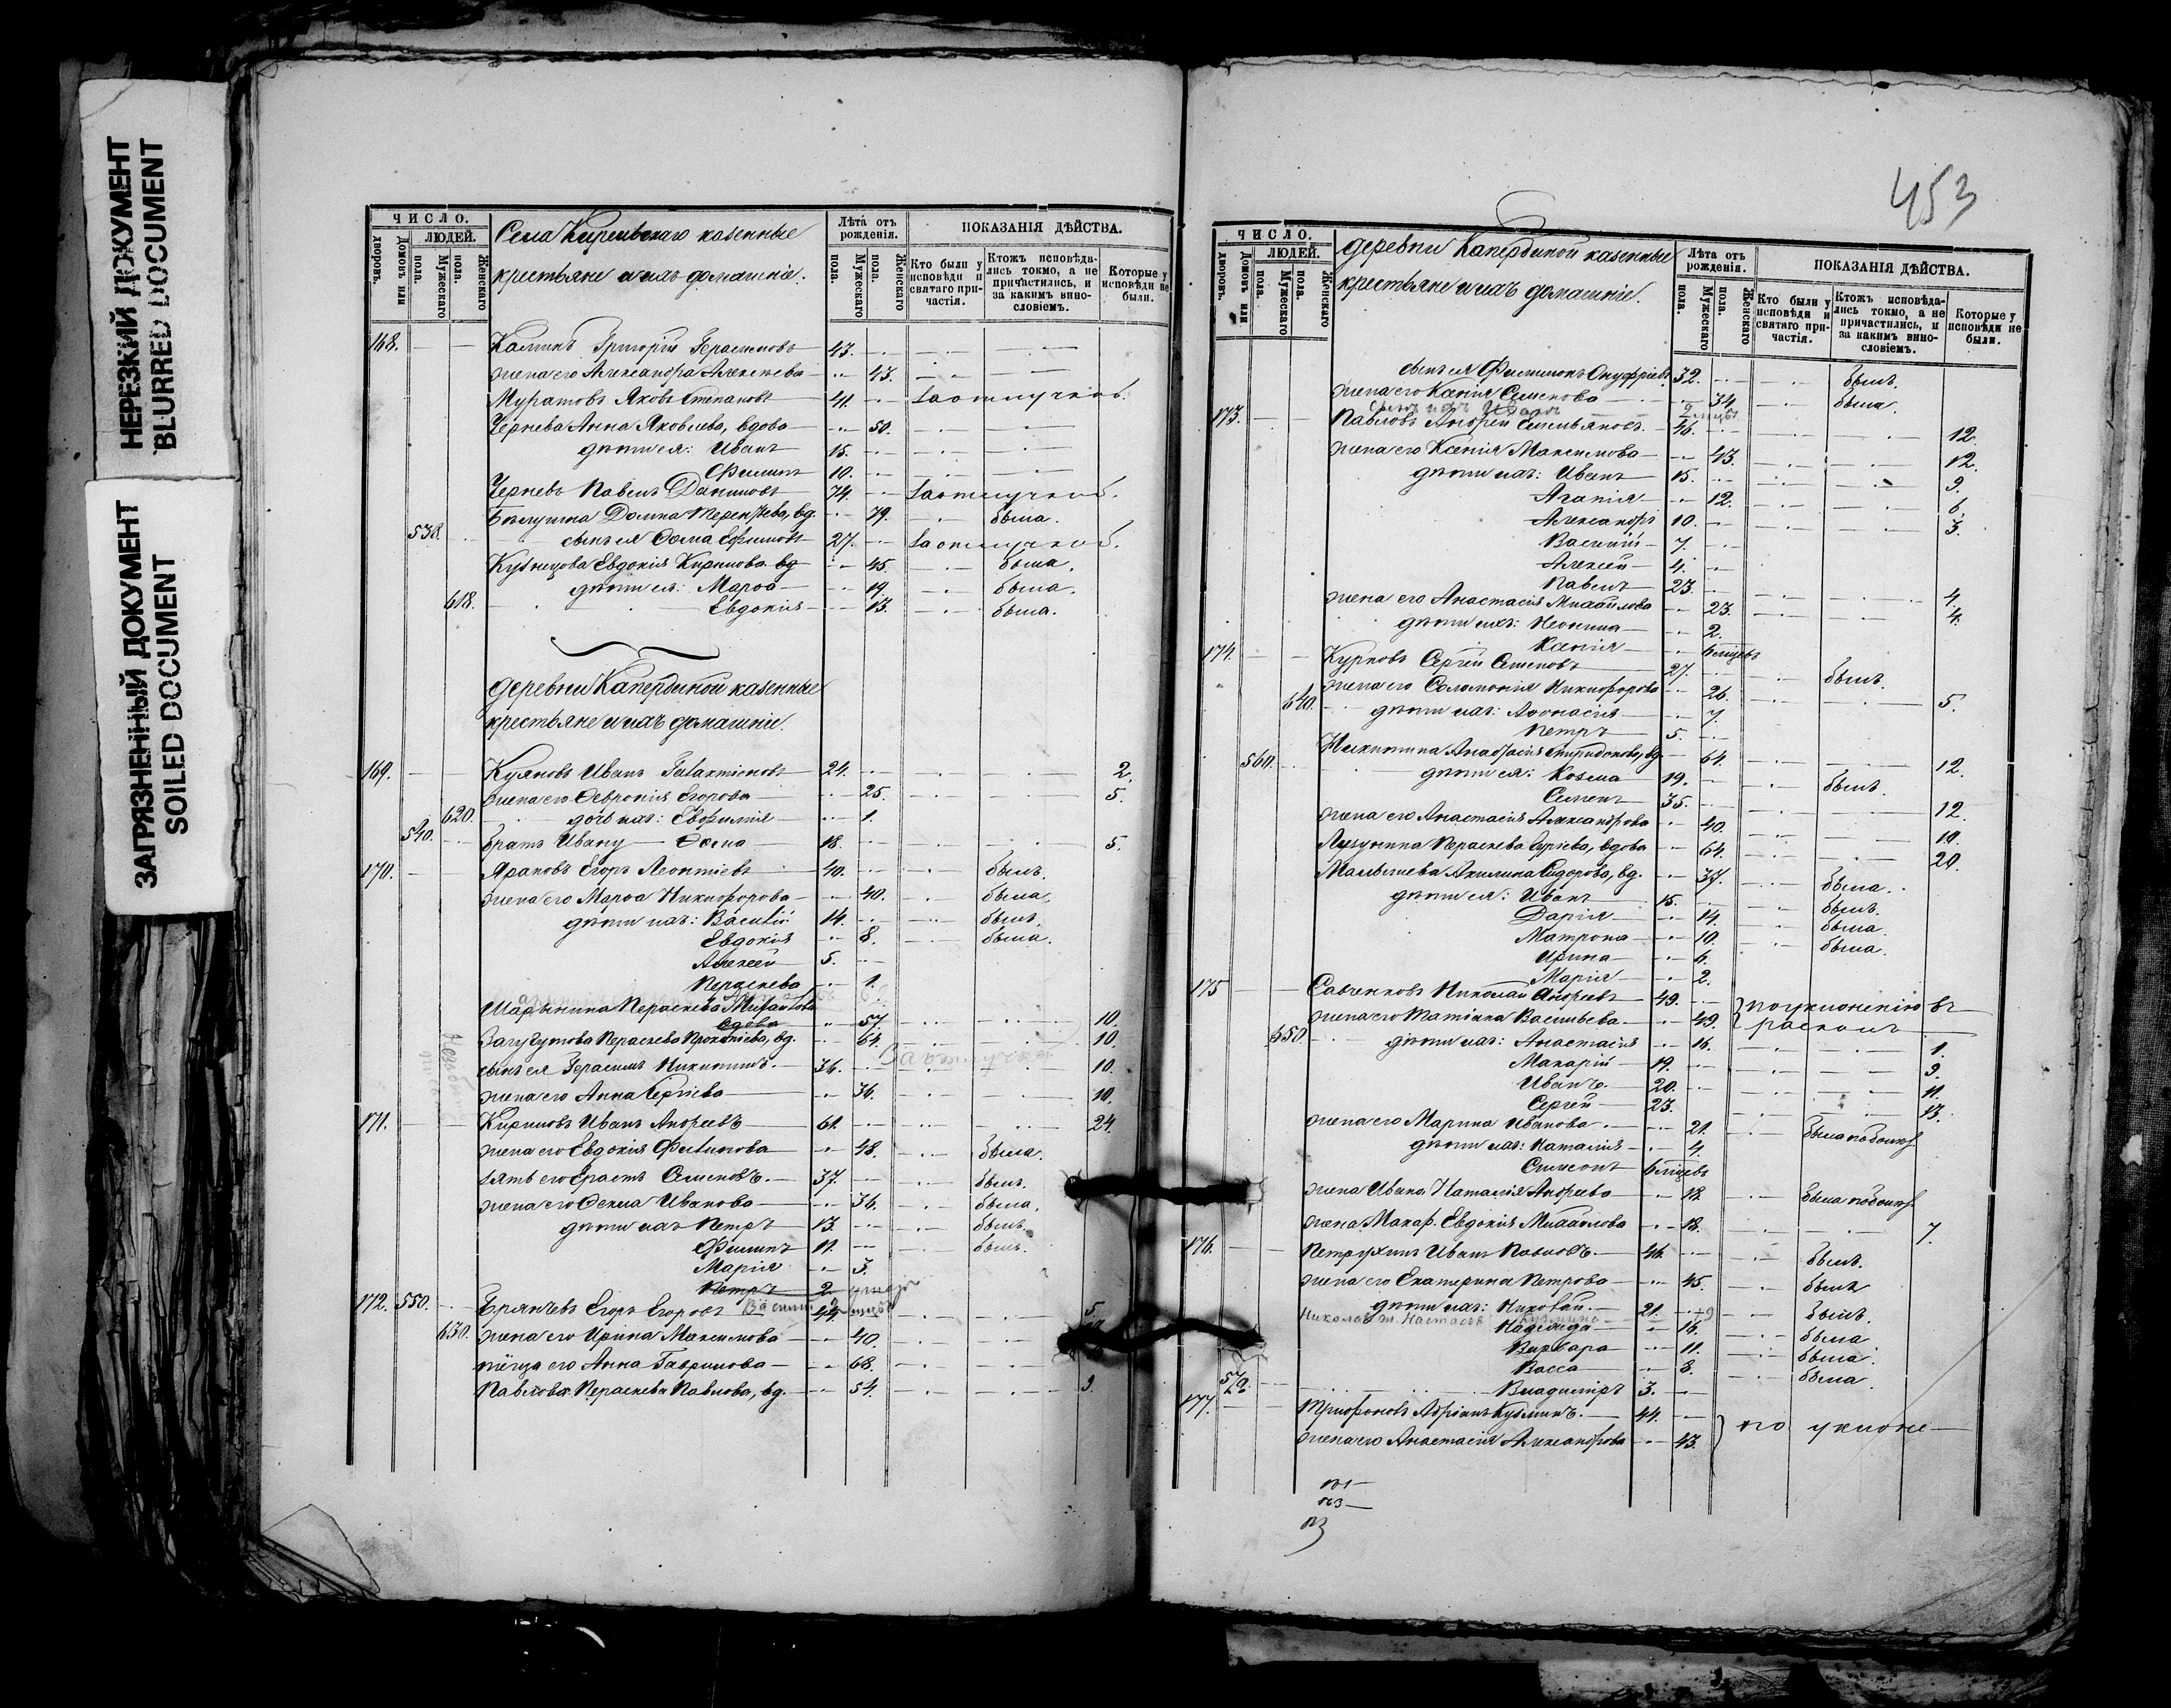 НЕРЕЗКИЙ ДОКУМЕНТ
BLURRED DOCUMENT
ЗАГРЯЗНЕННЫЙ ДОКУМЕНТ
SOILED DOCUMENT
ЧИСЛО.
Домовъ или дворовъ.
ЛЮДЕЙ.
Мужескаго пола.
Женскаго пола.
Села Киреивскаго казенные
крестьяне и ихъ домашніе.
Лѣта отъ рожденія.
Мужескаго пола.
Женскаго пола.
ПОКАЗАНІЯ ДѢЙСТВА.
Кто были у исповѣди и святаго причастія.
Ктожъ исповѣдались токмо, а не причастились, и за какимъ винословіемъ.
Которые у исповѣди не были.
168. Калинъ Григорій Герасимовъ 43.
жена его Александра Алексѣева 43.
Муратовъ Яковъ Степановъ 41. За отлучкой.
Чернева Анна Яковлева, вдова 50.
дѣти ея: Иванъ 15.
Филиппъ 10.
Черневъ Павелъ Даниловъ 74. За отлучкой.
Домна Терентьева, вд. 79. была.
538. сынъ ея Ѳома Ефимовъ 27. За отлучкой.
Кузнецова Евдокія Кирилова вд 45. была.
дѣти ея: Марѳа 19. была.
618. Евдокія 13. была.
деревни Капердиной казенные
крестьяне и ихъ домашніе.
169. Куяновъ Иванъ Галактіоновъ 24. 2.
жена его Ѳевронія Егорова 25. 5.
620. дочь ихъ: Евфимія 1.
540. братъ Ивану Ѳома 18. 5.
170. Араповъ Егоръ Леонтіевъ 40. былъ.
жена его Марѳа Никифорова 40. была.
дѣти ихъ: Василій 14. былъ.
Евдокія 8. была.
Алексѣй 5.
Параскева 1.
Шарынина Параскева Михайлова
вдова 57. 10.
Параскева Прокопіева, вд. 64. 10.
сынъ ея Герасимъ Никитинъ. 36. За отлучкой 10.
жена его Анна Сергіева 36. 10.
171. Кириловъ Иванъ Андреевъ 61. 24.
жена его Евдокія Филипова 48. была.
зять его Ерастъ Семеновъ. 37. былъ.
жена его Ѳекла Иванова 36. была.
дѣти ихъ Петръ 13. былъ.
Филипъ 11. былъ.
Марія 3.
Петръ 2.
172. 550. Егоръ Егоровъ 44. 5.
630. жена его Ирина Максимова 40.
тёща его Анна Гаврилова 68.
Павлова Параскева Павлова, вд. 54. 9.
453
ЧИСЛО.
Домовъ или дворовъ.
ЛЮДЕЙ.
Мужескаго пола.
Женскаго пола.
деревни Капердиной казенные
крестьяне и ихъ домашніе.
Лѣта отъ рожденія.
Мужескаго пола.
Женскаго пола.
ПОКАЗАНІЯ ДѢЙСТВА.
Кто были у исповѣди и святаго причастія.
Ктожъ исповѣдались токмо, а не причастились, и за какимъ винословіемъ.
Которые у исповѣди не были.
сынъ ея Филимонъ Онуфріевъ 32. былъ.
жена его Ксенія Семенова 34. была.
сынъ ихъ Иванъ
173. Павловъ Андрей Емельяновъ. 46. 12.
жена его Ксенія Максимова 43. 12.
дѣти ихъ: Иванъ 15. 9.
Агапія 12. 6.
Александръ 10. 3.
Василій 7.
Алексѣй 4.
Павелъ 23. 4.
жена его Анастасія Михайлова 23. 4.
дѣти ихъ: Неонила 2.
Ксенія 6 мцевъ
174. Курновъ Сергей Семеновъ 27. былъ.
жена его Соломонія Никифорова 26. 5.
640. дѣти ихъ: Аѳанасія 7.
Петръ 5.
560. Никитина Анастасія Спиридонова, вд. 64. 12.
дѣти ея: Козма 19. былъ.
Симеонъ 35. 12.
жена его Анастасія Александрова 40. 10.
Лузунина Параскева Сергіева, вдова 64. 20.
Малышева Акилина Сидорова, вд. 37. была.
дѣти ея: Иванъ 15. былъ.
Дарія 14. была.
Матрона 10. была.
Ирина 6.
Марія 2.
175 Савченковъ Николай Андреевъ 49. по уклоненію въ
жена его Татіана Васильева 49. расколъ
650 дѣти ихъ: Анастасія 16. 1.
Макарій 19. 9.
Иванъ. 20. 11.
Сергей 23. 13.
жена его Марина Иванова. 21.
дѣти ихъ: Наталія 4.
Симеонъ 6 мцевъ
жена Ивана Наталія Андреева 18.
жена Макар. Евдокія Михайлова 18. 7.
176. Петрухинъ Иванъ Павловъ. 46. былъ.
жена его Екатерина Петрова 45. была
дѣти ихъ: Николай. 21. былъ.
Николая ж. Настасья Кузмина 19
Надежда 16. была
Варвара 11. была.
Васса 8. была
570. Владиміръ 3.
177. Трифоновъ Адріанъ Кузминъ. 44. по уклоне
жена его Анастасія Александрова 43.